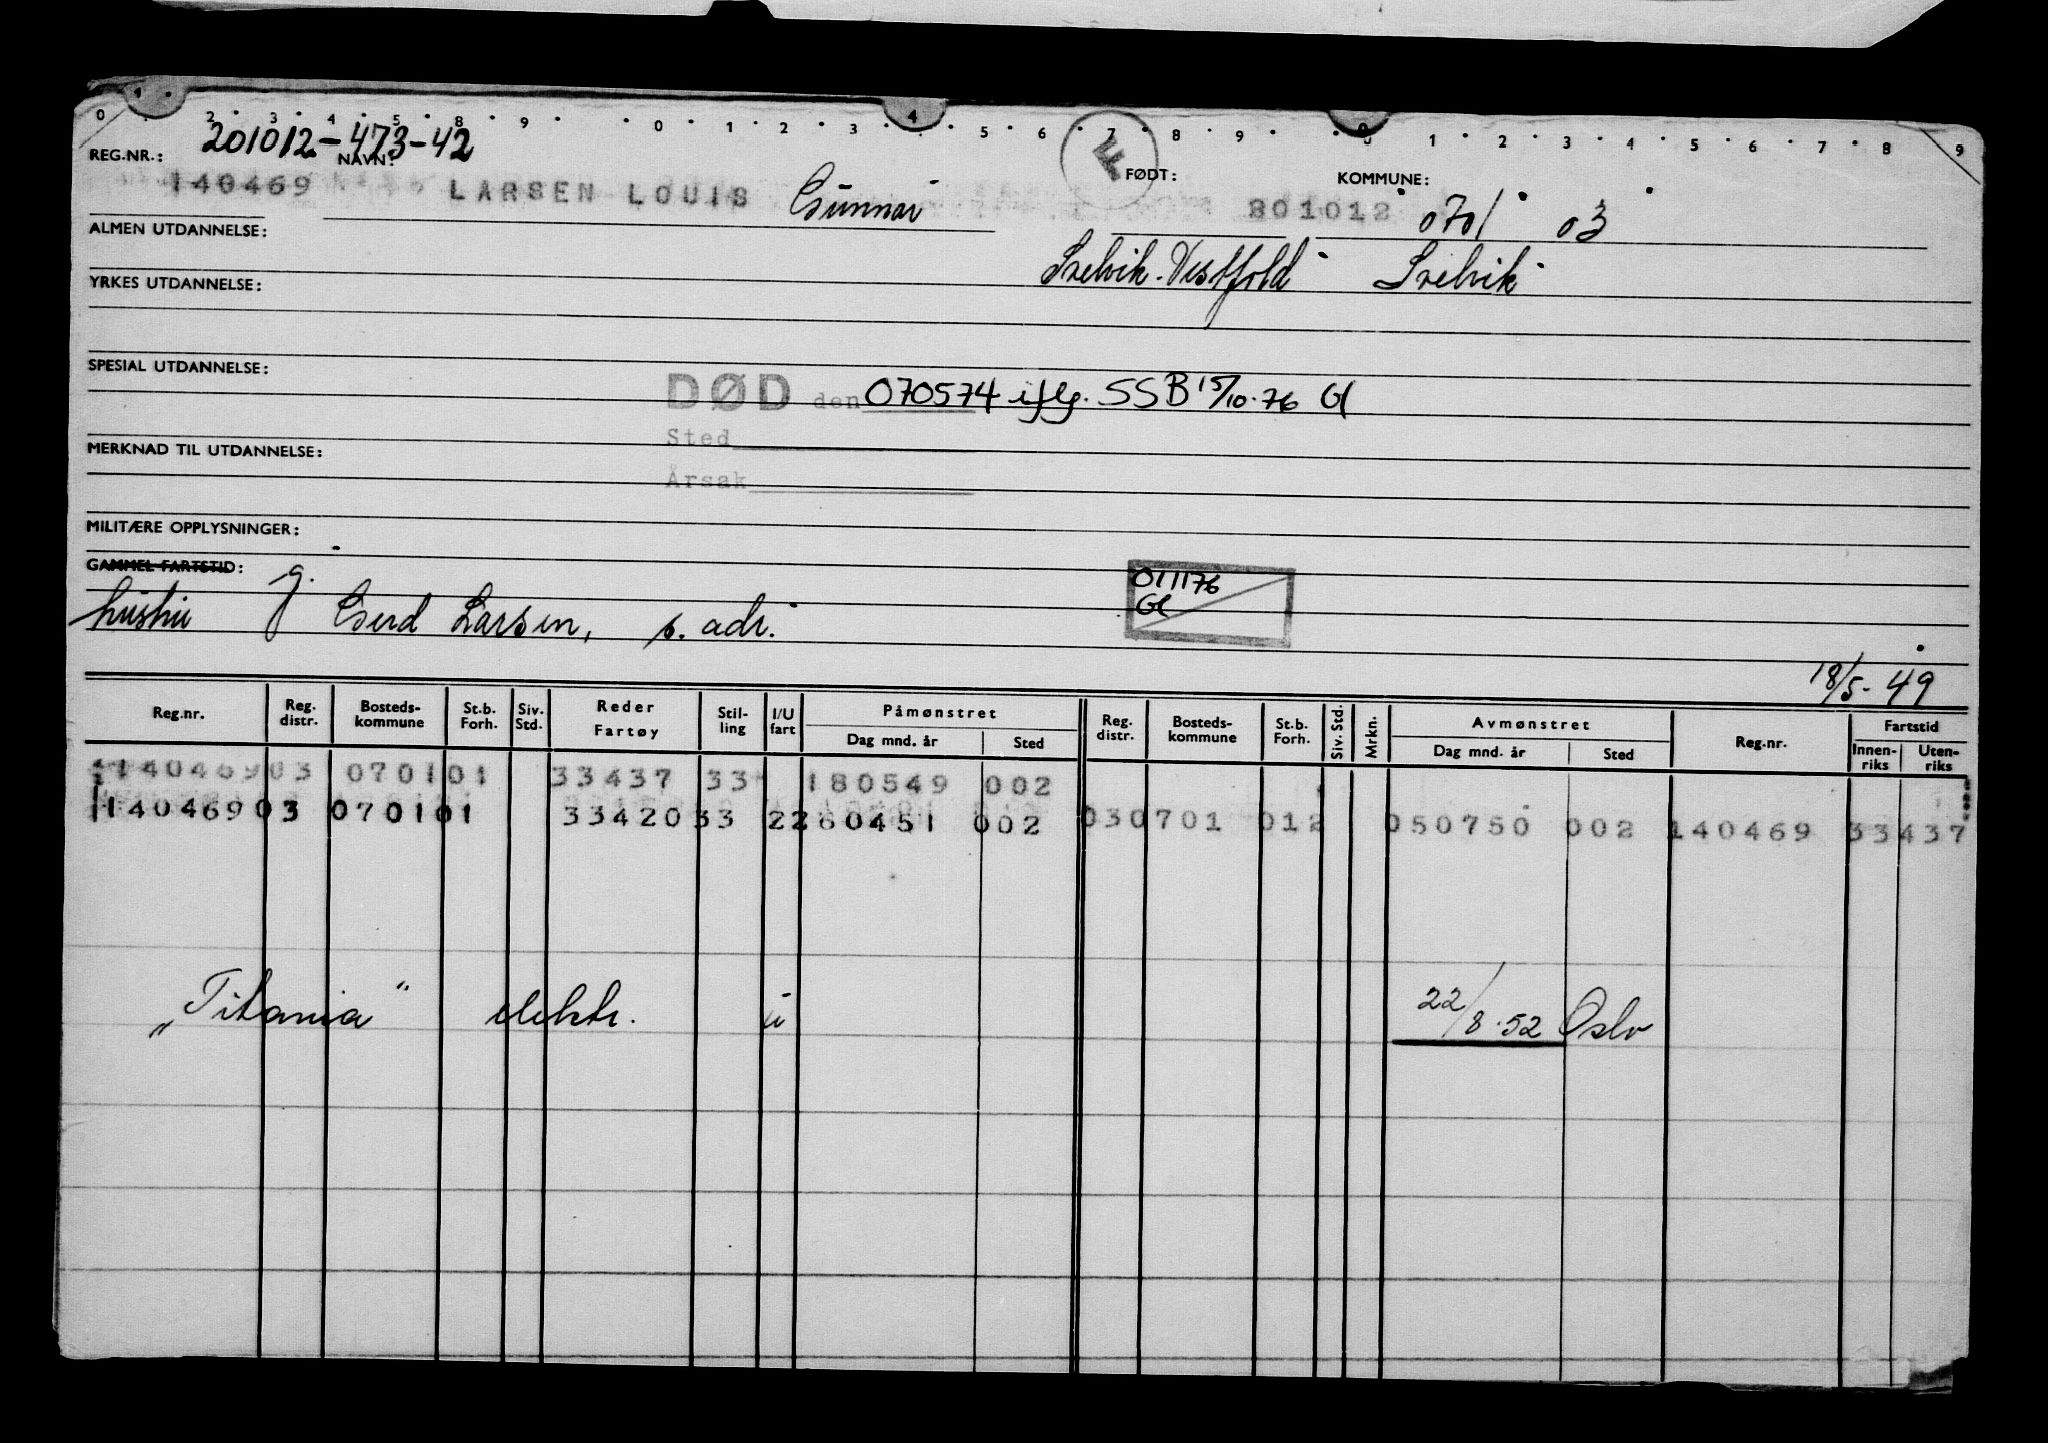 0 1 2 3 4 5 8 9 0 1 2 3 4 5 6 7 8 9 0 1 2 3 4 5 6 7 8 9
201012-473-42
REG.NR.: NAVN: F FØDT: KOMMUNE:
140469 LARSEN LOUIS Gunnar 201012 0701 03
ALMEN UTDANNELSE:
Svelvik. Vestfold Svelvik
YRKES UTDANNELSE:
SPESIAL UTDANNELSE:
DØD den 070574 iflg. SSB 15/10-76 Gl
Sted
MERKNAD TIL UTDANNELSE:
Årsak
MILITÆRE OPPLYSNINGER:
GAMMEL FARTSTID:
g. 011176
hustru Gerd Larsen, s. adr. Gl
18/5-49
Reg.nr. Reg. distr. Bosteds-kommune St.b. Forh. Siv. Std. Reder Fartøy Stil-ling I/U fart Påmønstret Dag mnd. år Sted Reg. distr. Bosteds-kommune St.b. Forh. Siv. Std. Mrkn. Avmønstret Dag mnd. år Sted Reg.nr. Fartstid Innen-riks Uten-riks
114046903 070101 33437 33 180549 002
114046903 070101 33420 33 2 260451 002 030701 012 050750 002 140469 33437
"Titania" elektr. u 22/8-52 Oslo